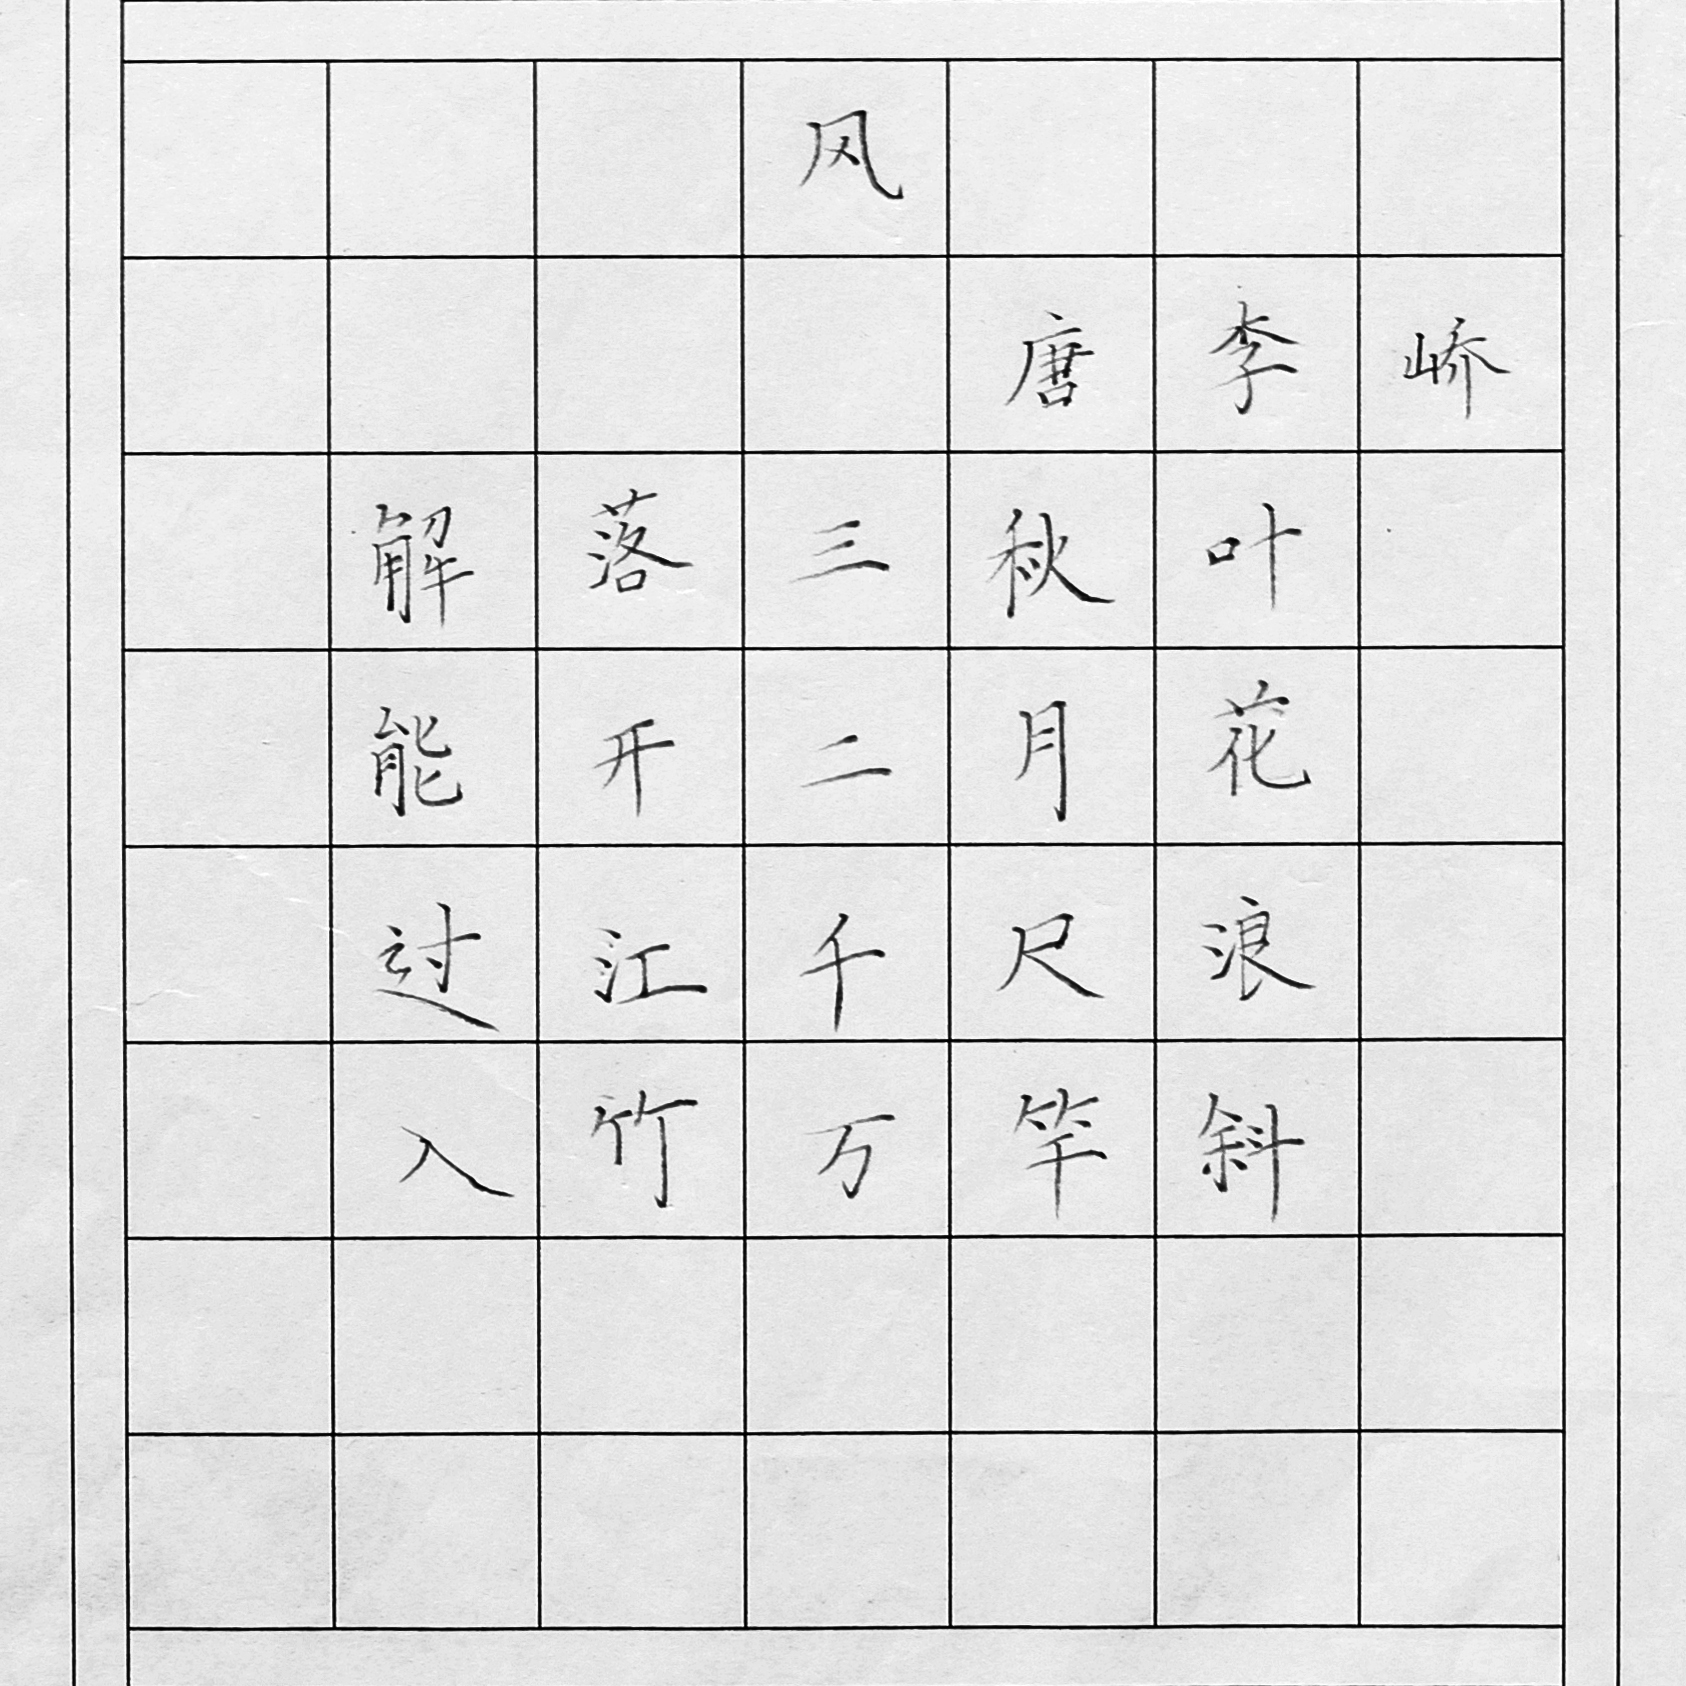 风
唐李峤
解落三秋叶
能开二月花
过江千尺浪
入竹万竿斜